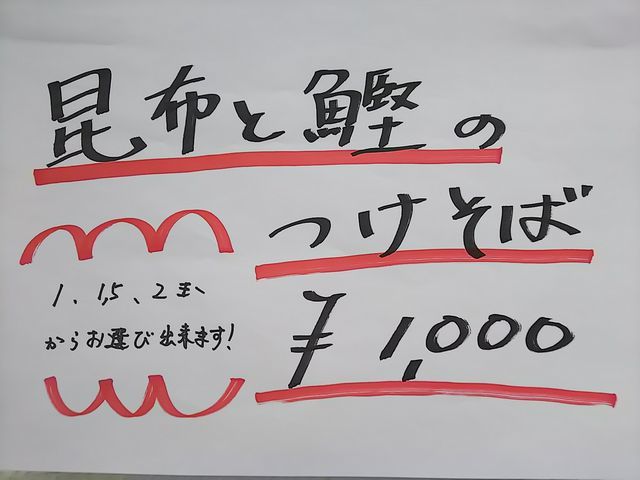 昆布と鰹の
つけそば
1、1,5、2玉、
からお選び出来ます!
¥1,000